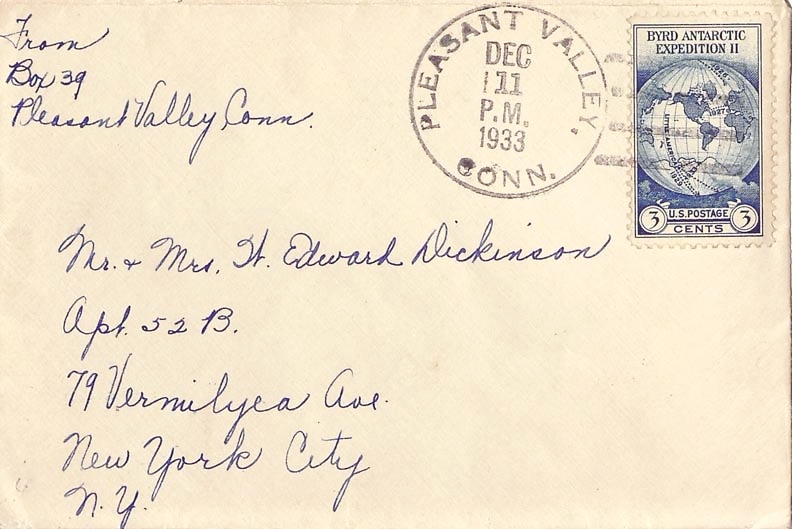 From
Box 39
Pleasant Valley Conn.
PLEASANT VALLEY,
DEC
11
P.M.
1933
CONN.
BYRD ANTARCTIC
EXPEDITION II
1926
1927
LITTLE AMERICA
1929
3 U.S. POSTAGE 3
CENTS
Mr. & Mrs. H. Edward Dickinson
Apt. 52 B.
79 Vermilyea Ave.
New York City
N.Y.